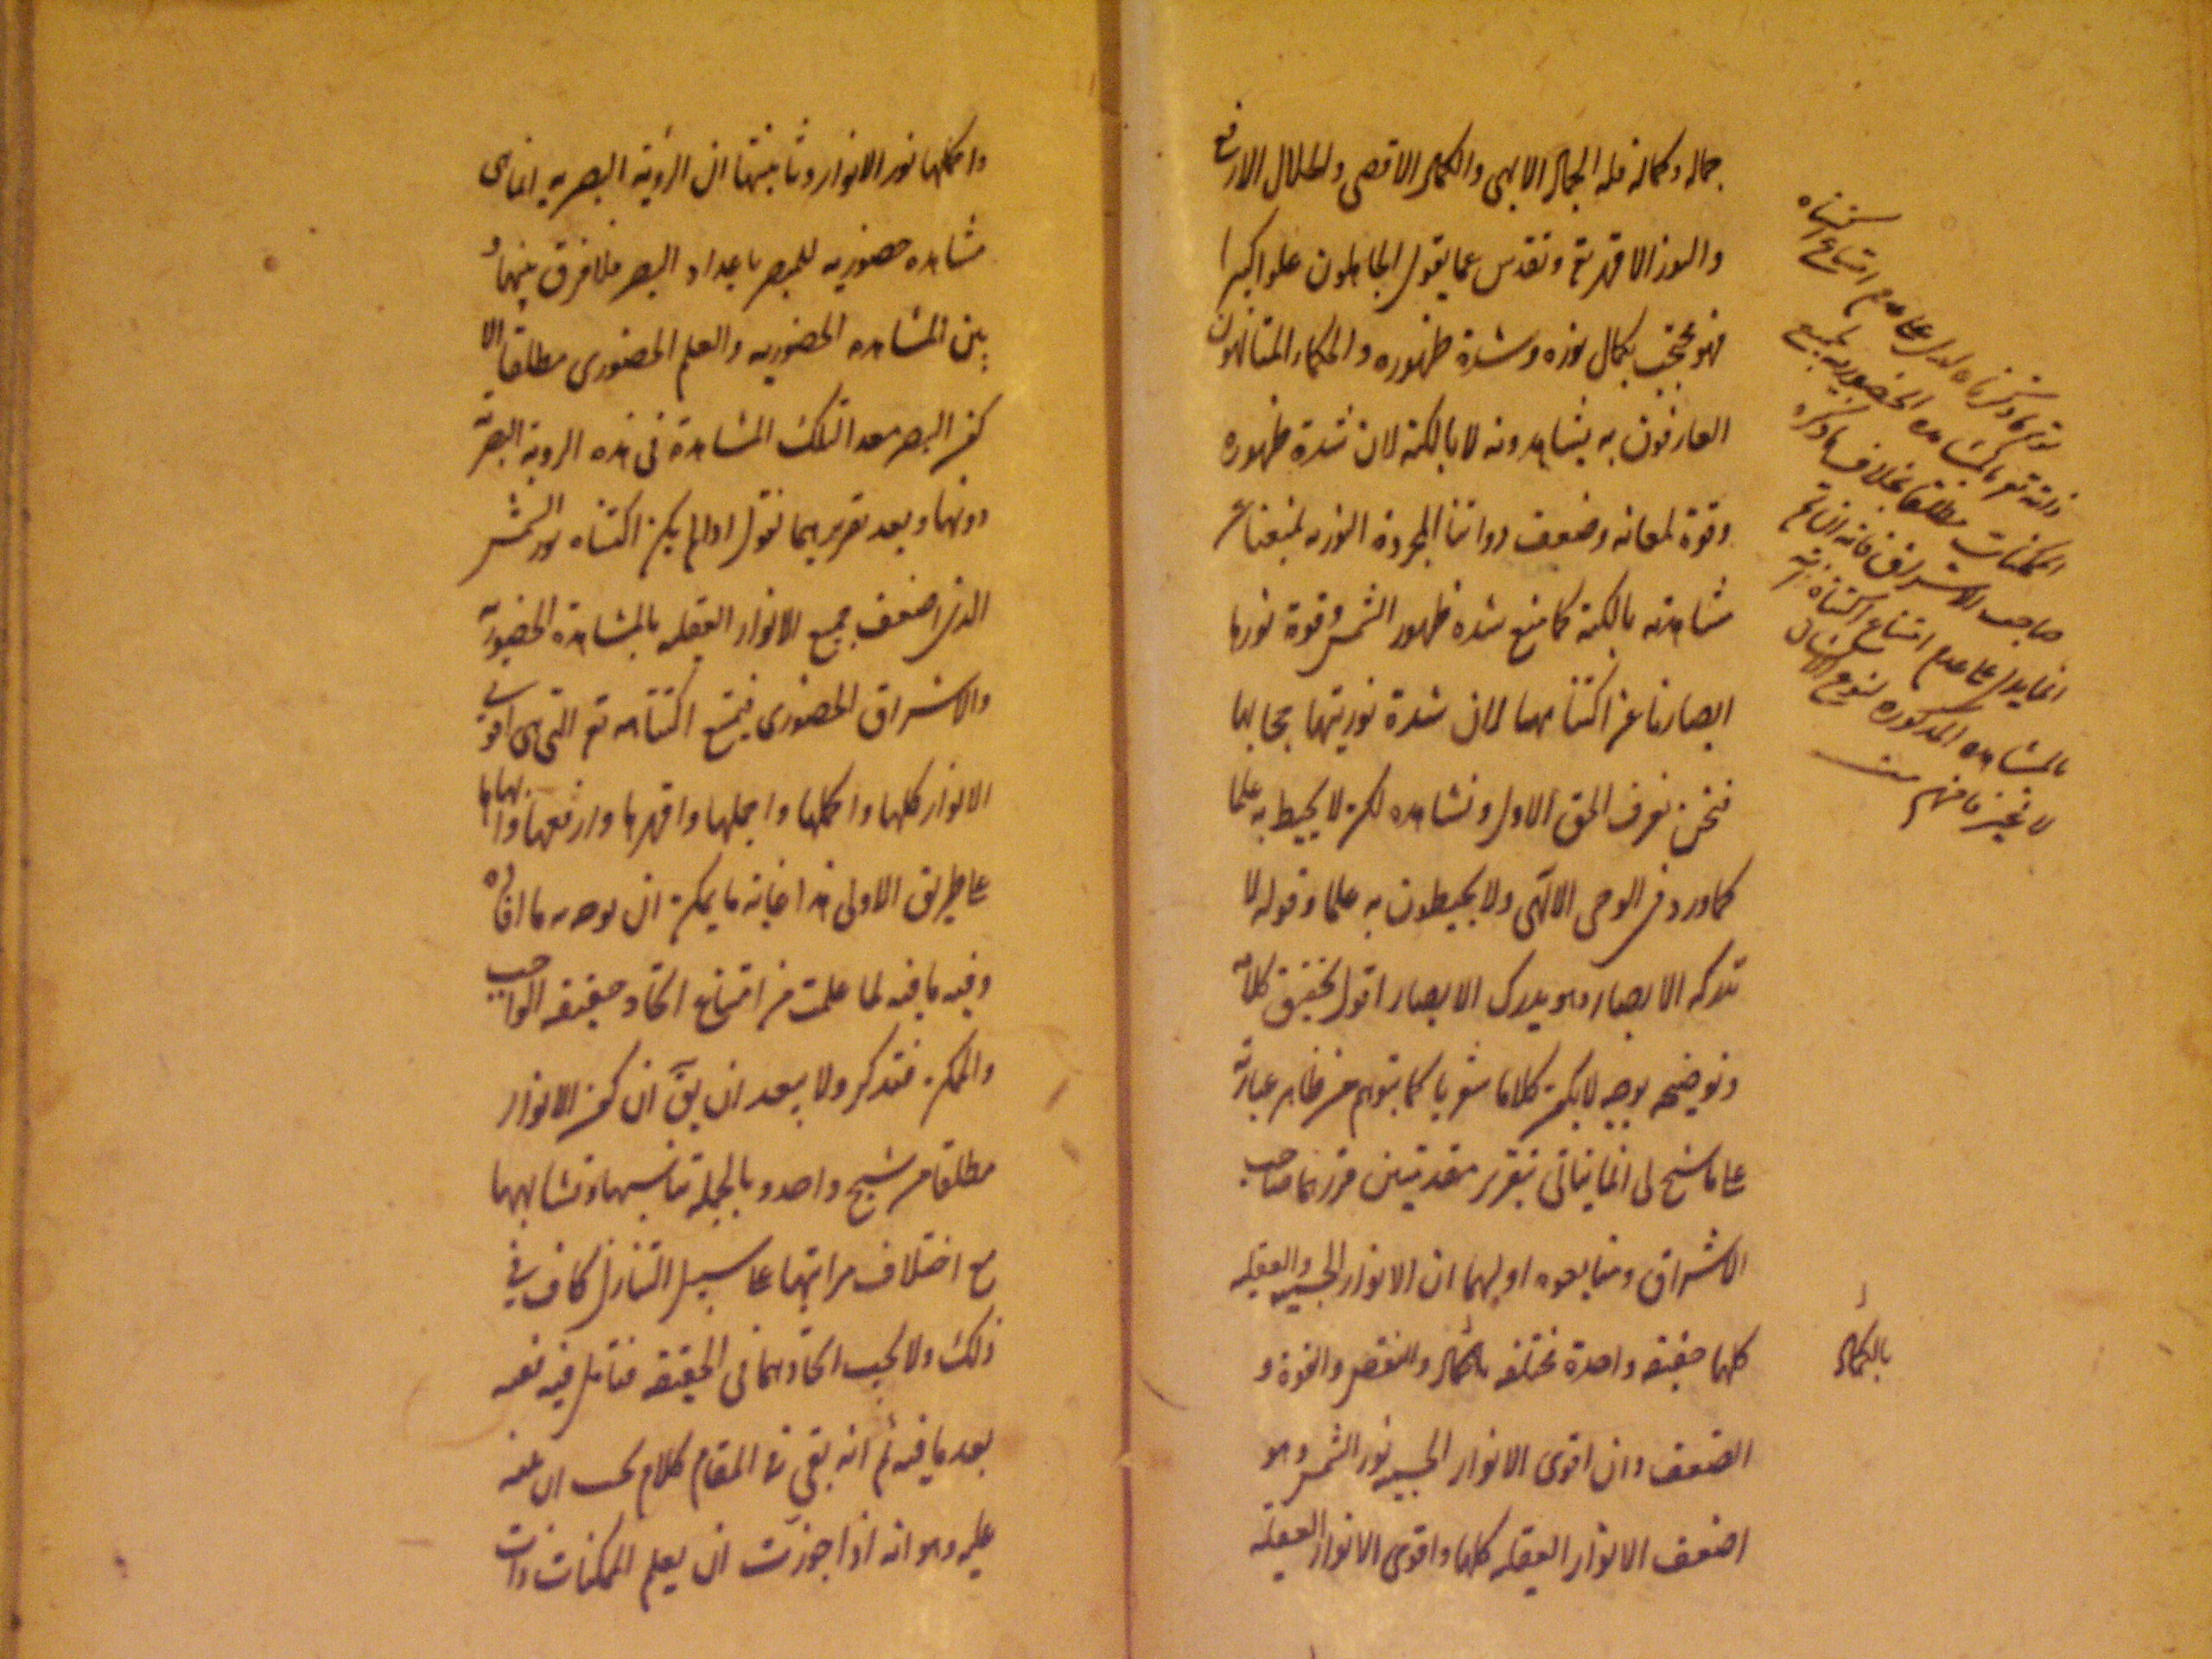 جماله وكماله فله الجمال الابهى والكمال الاقصى والجلال الارفع
والنور الاقهر تع وتقدس عما يقول الجاهلون علوا كبيرا
فهو محتجب بكمال نوره وشدة ظهوره والحكماء المتألهون
العارفون به يشاهدونه لا بالكنه لان شدة ظهوره
وقوة لمعانه وضعف ذواتنا المجردة النورية يمنعنا عن
مشاهدته بالكنه كما منع شدة ظهور الشمس وقوة نورها
ابصارنا عن اكتناهها لان شدة نوريتها حجابها
فنحن نعرف الحق الاول ونشاهده لكن لا يحيط به علما
كما ورد في الوحى الالهى ولا يحيطون به علما وقوله لا
تدركه الابصار وهو يدرك الابصار اقول تحقيق كلامه
وتوضيحه بوجه لا يكون كلاما شعريا كما يتوهم من ظاهر عبارته
على ما سنح لى انما يتأتى بتقرير مقدمتين قررهما صاحب
الاشراق ومتابعوه اوليهما ان الانوار الحسية والعقلية
كلها حقيقة واحدة مختلفة بالكمال والنقص والقوة و
الضعف وان اقوى الانوار الحسية نور الشمس وهو
اضعف الانوار العقلية كلها واقوى الانوار العقلية
امتناع اكتناه
ذاته تع بالمشاهدة الحضورية لجميع
الممكنات مطلقا بخلاف ما ذكره
صاحب الاشراق فانه ان تم
انما يدل على عدم امتناع اكتناه ذاته
بالمشاهدة المذكورة لنوع الانسان
لا غير فافهم منه
بالكمال
واكملها نور الانوار وثانيتهما ان الرؤية البصرية انما هى
مشاهدة حضورية للمبصر باعداد البصر فلا فرق بينها و
بين المشاهدة الحضورية والعلم الحضورى مطلقا الا
كون البصر معدا لتلك المشاهدة في هذه الروية البصرية
دونها وبعد تقريرهما نقول اذا لم يكن اكتناه نور الشمس
الذى اضعف جميع الانوار العقلية بالمشاهدة الحضورية
والاشراق الحضورى فيمتنع اكتناهه تع التى هى اقوى
الانوار كلها واكملها واجملها واقهرها وارفعها وابهاها
على طريق الاولى هذا غاية ما يمكن ان يوجه به ما افاده
وفيه ما فيه لما علمت من امتناع اتحاد حقيقة الواجب
والممكن فتذكر ولا يبعد ان يق ان كون الانوار
مطلقا من سنخ واحد وبالجملة تناسبها وتشابهها
مع اختلاف مراتبها على سبيل التنازل كاف في
ذلك ولا يجب اتحادهما في الحقيقة فتأمل فيه ففيه
بعد ما فيه ثم انه بقى في المقام كلام يجب ان ينبه
عليه وهو انه اذا جوزت ان يعلم الممكنات ذات